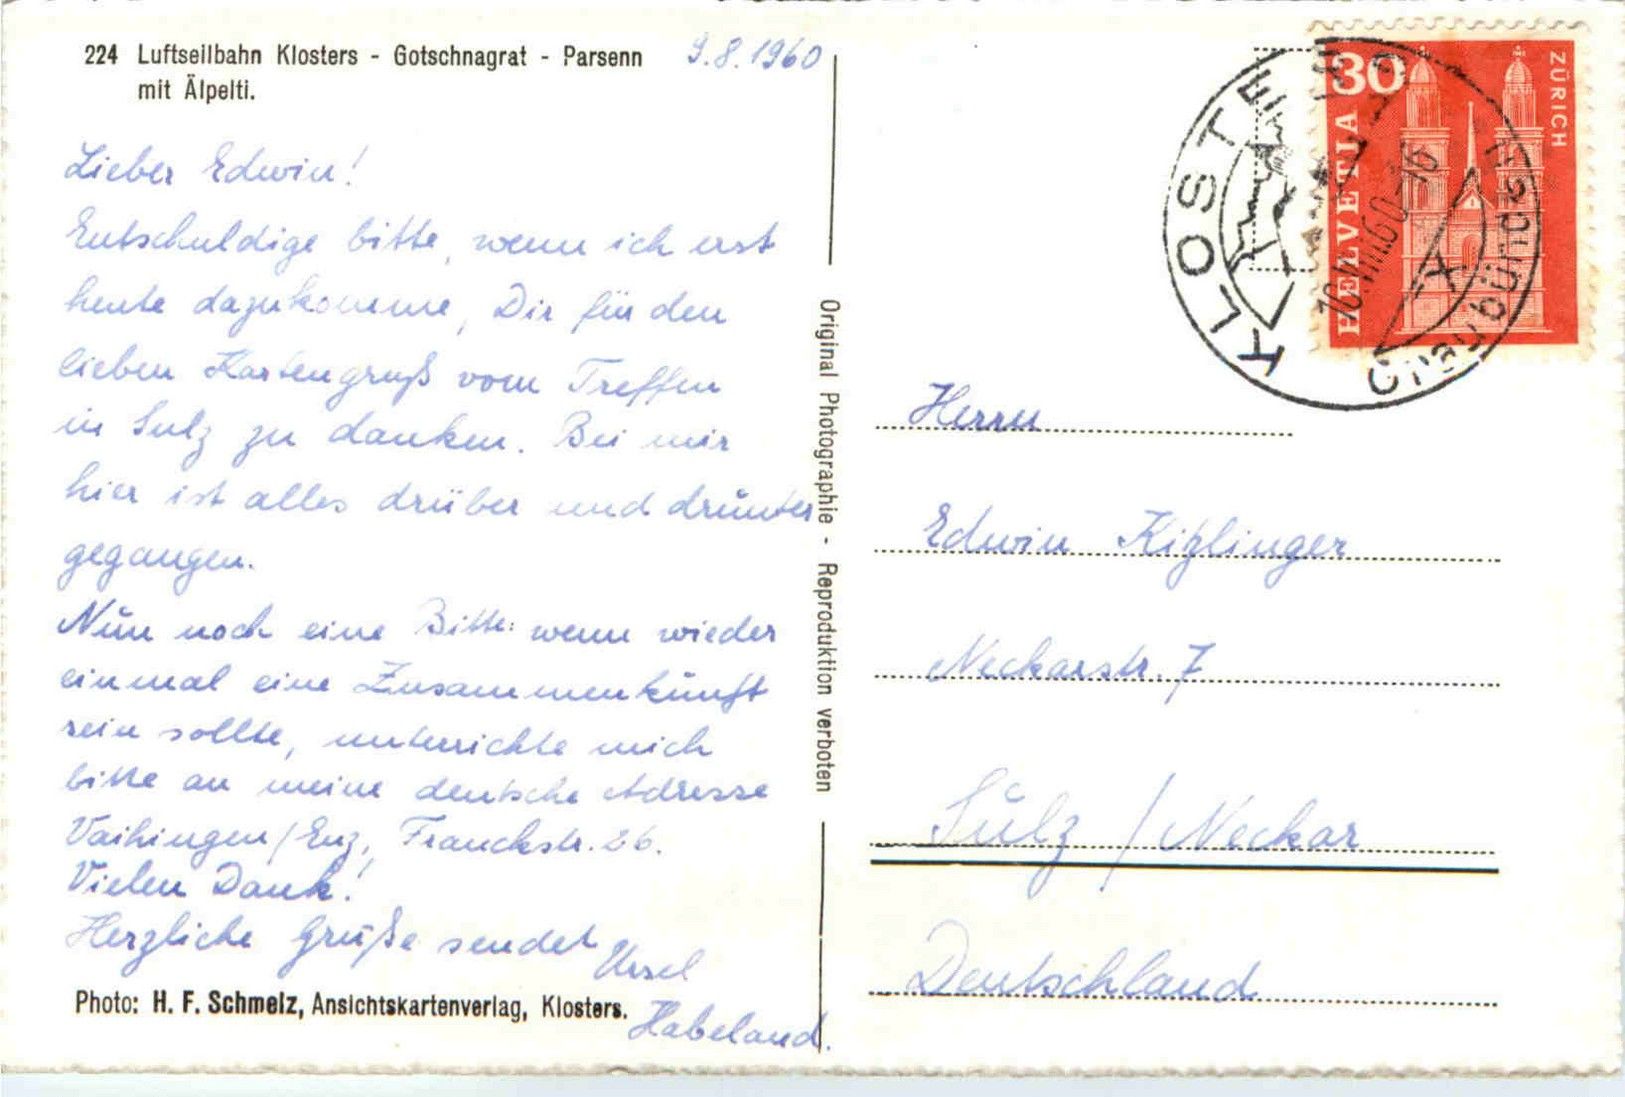 224 Luftseilbahn Klosters - Gotschnagrat - Parsenn
mit Älpelti.
9.8.1960
Lieber Edwin!
Entschuldige bitte, wenn ich erst
heute dazukomme, Dir für den
lieben Kartengruß vom Treffen
in Sulz zu danken. Bei mir
hier ist alles drüber und drunter
gegangen.
Nun noch eine Bitte: wenn wieder
einmal eine Zusammenkunft
sein sollte, unterrichte mich
bitte an meine deutsche Adresse
Vaihingen/Enz, Franckstr. 26.
Vielen Dank!
Herzliche Grüße sendet
Ursel
Habeland.
Photo: H. F. Schmelz, Ansichtskartenverlag, Klosters.
Original Photographie - Reproduktion verboten
30
HELVETIA
ZÜRICH
KLOSTERS
10.VIII.60-16
Graubünden
Herrn
Edwin Kißlinger
Neckarstr. 7
Sulz / Neckar
Deutschland